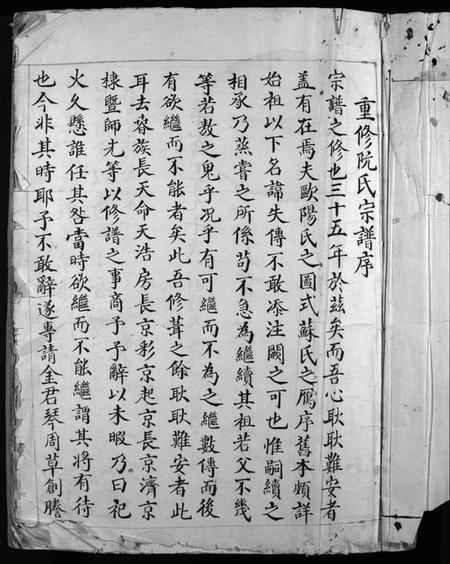 重修阮氏宗譜序
宗譜之修也三十五年於茲矣而吾心耿耿難安者
盖有在焉夫歐陽氏之圖式蘇氏之鴈序舊本頗詳
始祖以下名諱失傳不敢添注闕之可也惟嗣續之
相承乃蒸嘗之所係苟不急為繼續其祖若父不幾
等若敖之鬼乎况乎有可繼而不為之繼數傳而後
有欲繼而不能者矣此吾修葺之餘耿耿難安者此
耳去咨族長天命天浩房長京彩京起京長京濟京
棣暨師尤等以修譜之事商予予辭以未暇乃曰祀
火久懸誰任其咎當時欲繼而不能繼謂其將有待
也今非其時耶予不敢辭遂專請金君琴周草創謄